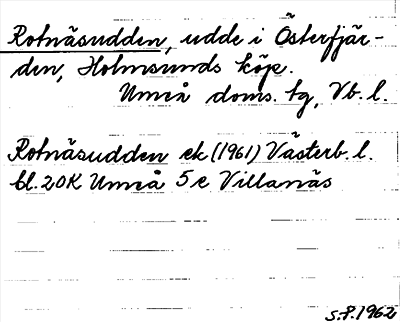 Rotnäsudden, udde i Österfjär-
den, Holmsunds köp.
Umeå doms. tg, Vb. l.
Rotnäsudden ek (1961) Västerb. l.
bl. 20K Umeå 5e Villanäs
S.P. 1962